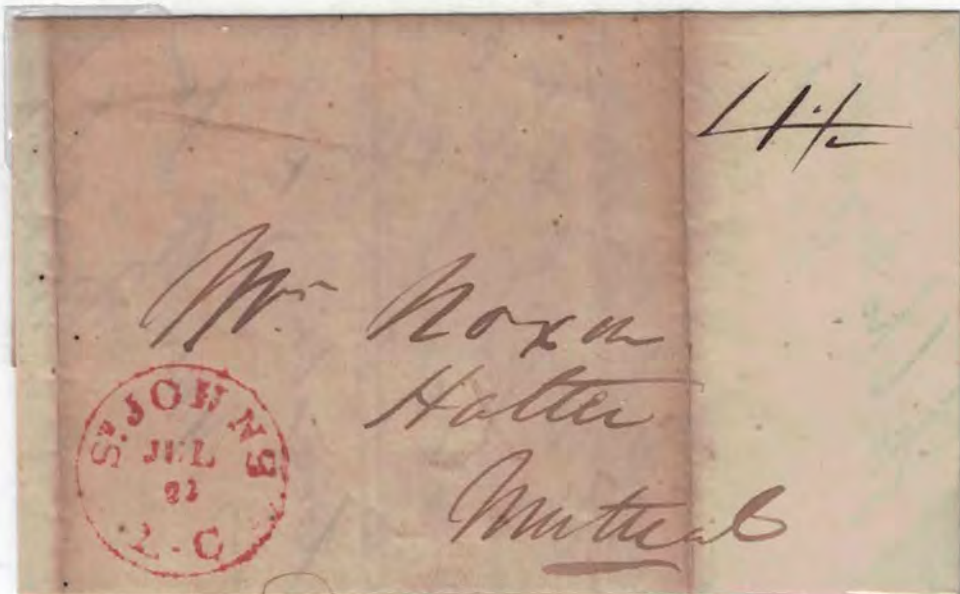 4 1/2
Mr. Noxon
Hatter
Montreal
ST. JOHNS
JUL
L. C